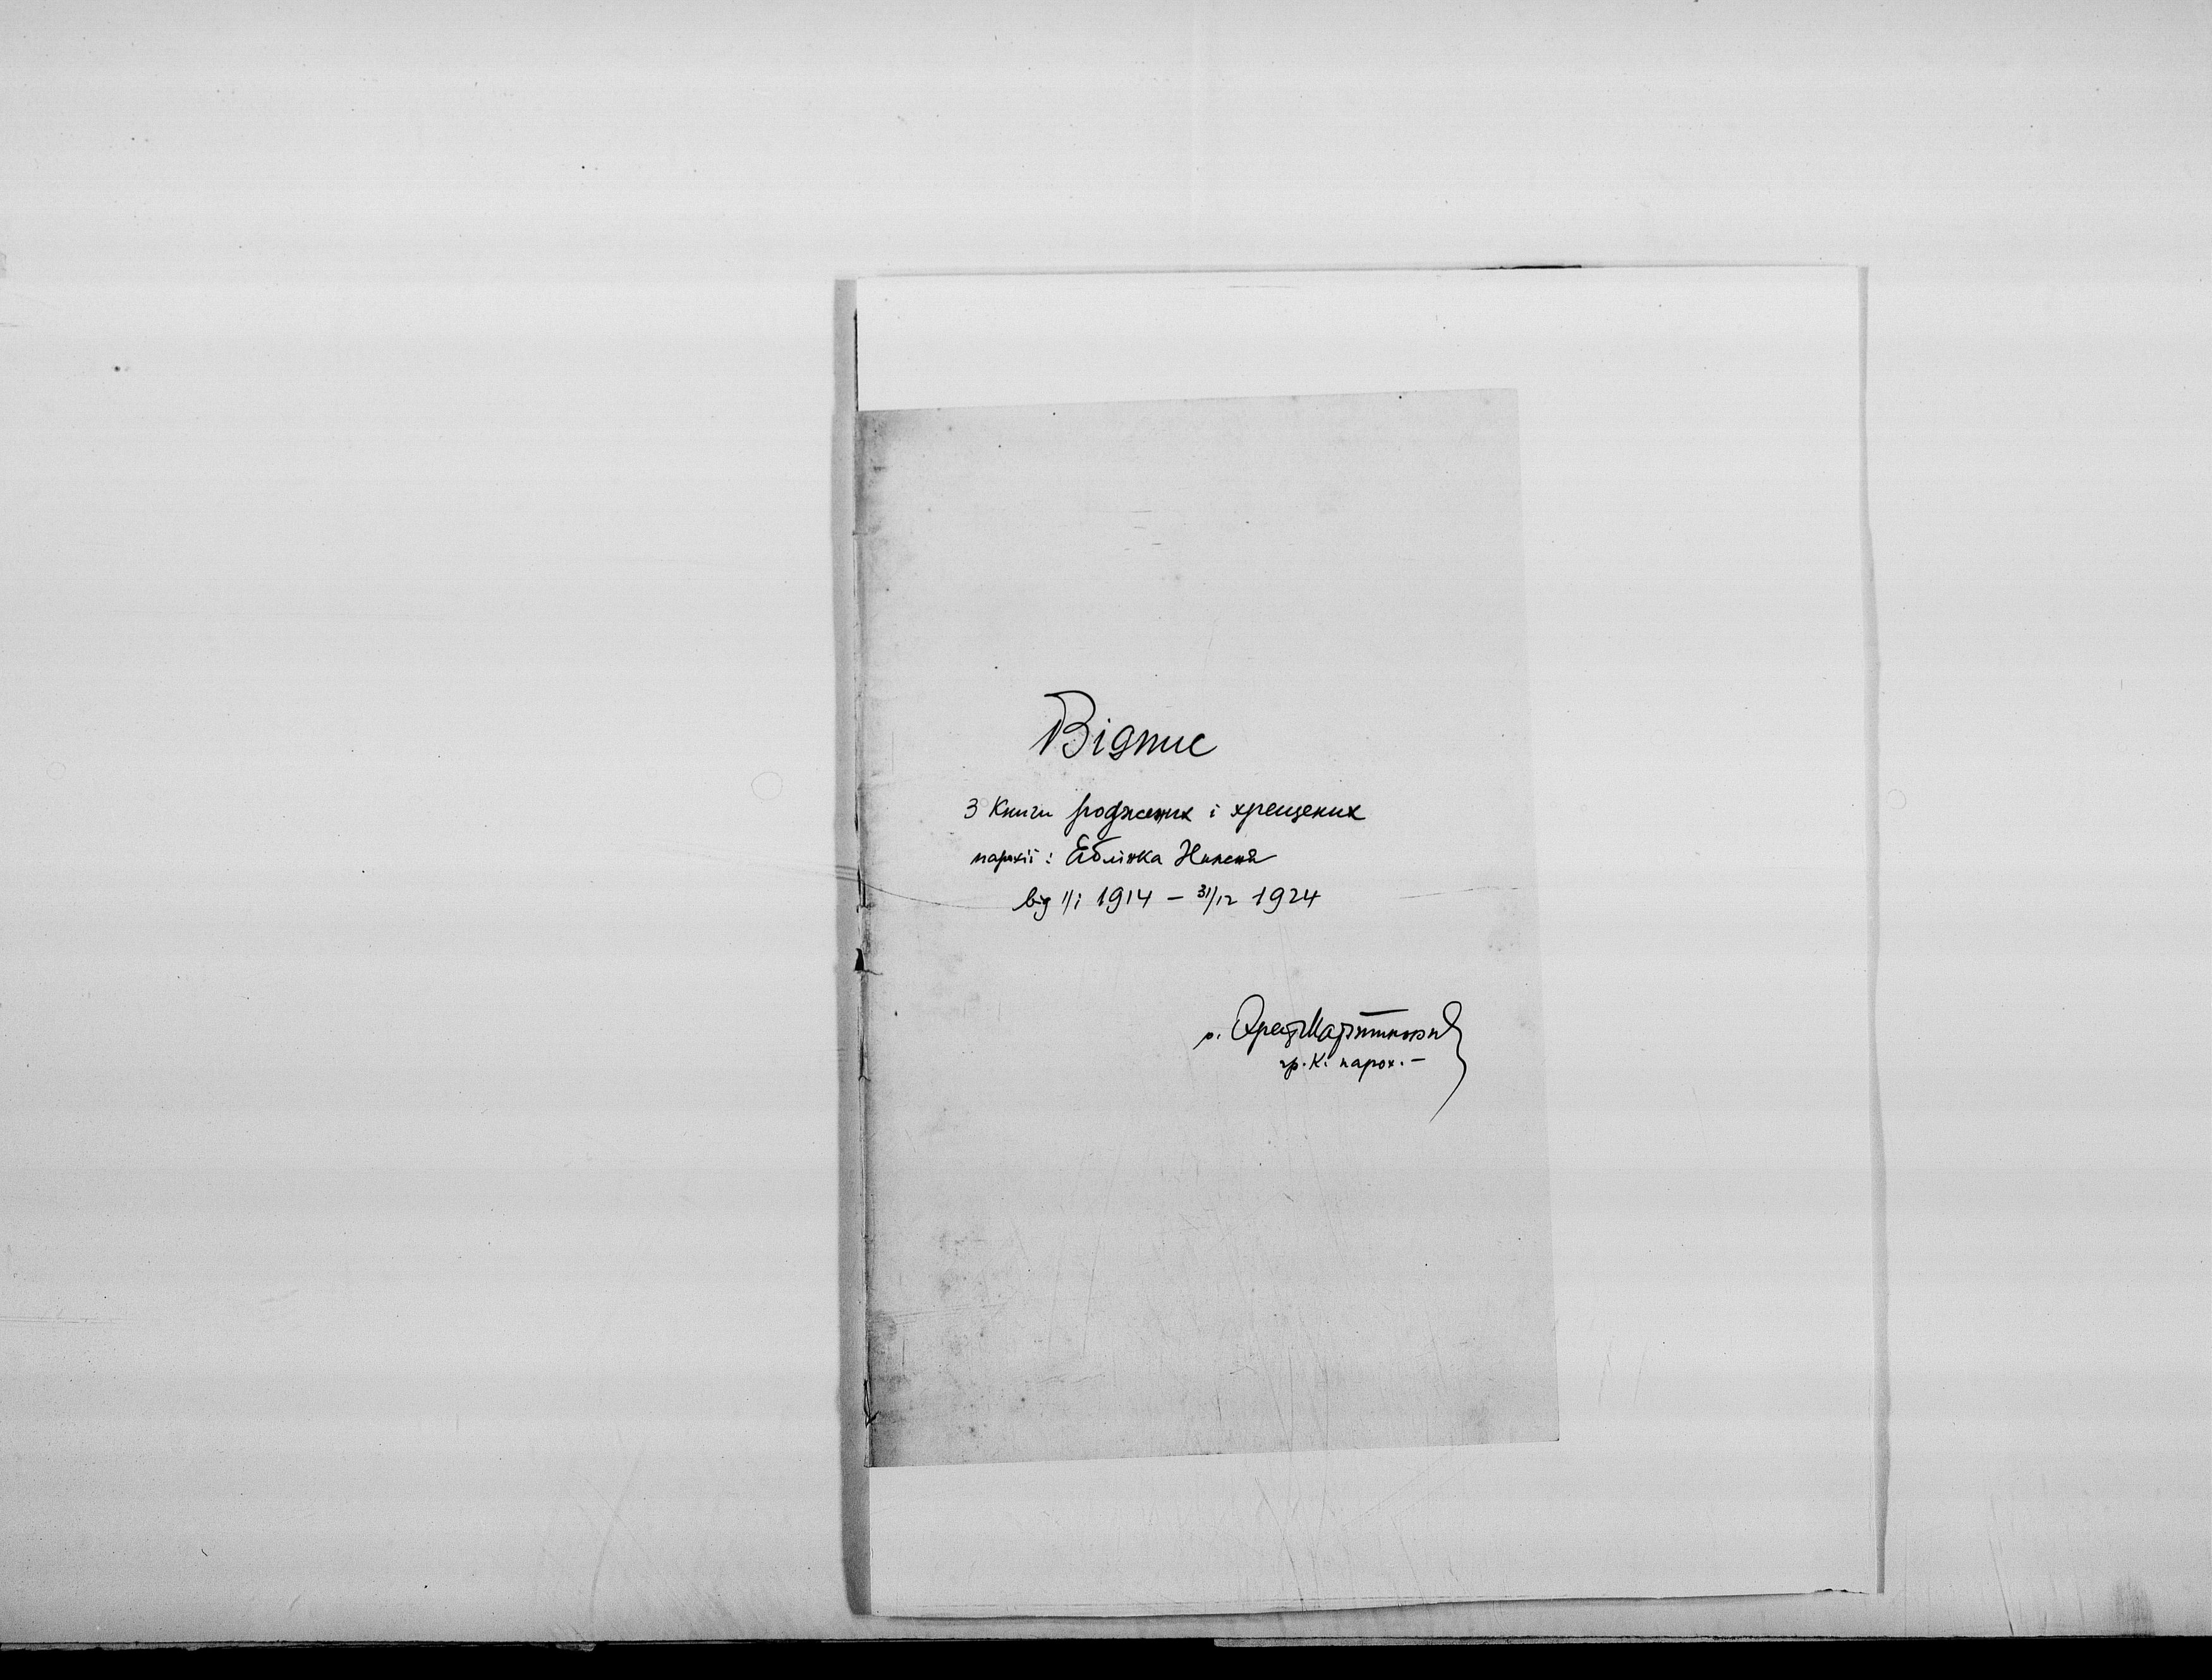 Відпис
З Книги роджених і хрещених
парохії: Яблінка Нижня
від 1/1 1914 – 31/12 1924
о.
гр. К. парох. –